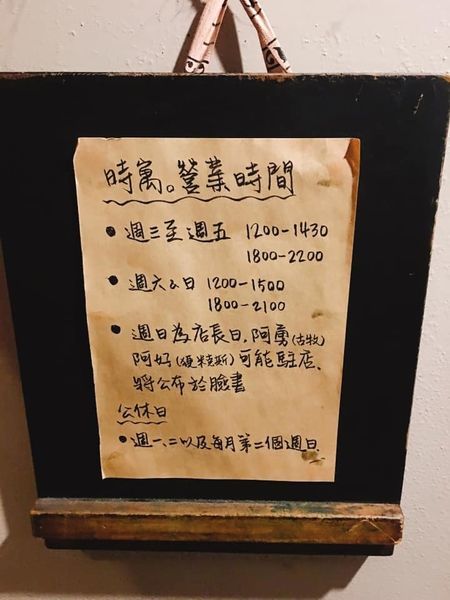 時寓。營業時間
• 週三至週五 1200-1430
1800-2200
• 週六&日 1200-1500
1800-2100
• 週日為店長日,阿勇(古牧)
阿好(漫米斯)可能駐店、
將公布於臉書
公休日
• 週一、二以及每月第二個週日